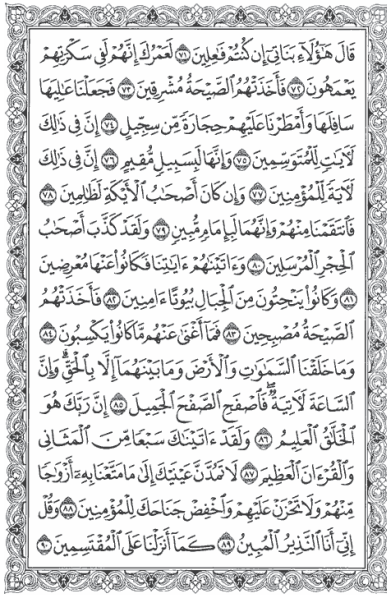 قَالَ هَٰٓؤُلَآءِ بَنَاتِىٓ إِن كُنتُمْ فَٰعِلِينَ ٧١ لَعَمْرُكَ إِنَّهُمْ لَفِى سَكْرَتِهِمْ
يَعْمَهُونَ ٧٢ فَأَخَذَتْهُمُ ٱلصَّيْحَةُ مُشْرِقِينَ ٧٣ فَجَعَلْنَا عَٰلِيَهَا
سَافِلَهَا وَأَمْطَرْنَا عَلَيْهِمْ حِجَارَةً مِّن سِجِّيلٍ ٧٤ إِنَّ فِى ذَٰلِكَ
لَءَايَٰتٍ لِّلْمُتَوَسِّمِينَ ٧٥ وَإِنَّهَا لَبِسَبِيلٍ مُّقِيمٍ ٧٦ إِنَّ فِى ذَٰلِكَ
لَءَايَةً لِّلْمُؤْمِنِينَ ٧٧ وَإِن كَانَ أَصْحَٰبُ ٱلْأَيْكَةِ لَظَٰلِمِينَ ٧٨
فَٱنتَقَمْنَا مِنْهُمْ وَإِنَّهُمَا لَبِإِمَامٍ مُّبِينٍ ٧٩ وَلَقَدْ كَذَّبَ أَصْحَٰبُ
ٱلْحِجْرِ ٱلْمُرْسَلِينَ ٨٠ وَءَاتَيْنَٰهُمْ ءَايَٰتِنَا فَكَانُوا۟ عَنْهَا مُعْرِضِينَ
٨١ وَكَانُوا۟ يَنْحِتُونَ مِنَ ٱلْجِبَالِ بُيُوتًا ءَامِنِينَ ٨٢ فَأَخَذَتْهُمُ
ٱلصَّيْحَةُ مُصْبِحِينَ ٨٣ فَمَآ أَغْنَىٰ عَنْهُم مَّا كَانُوا۟ يَكْسِبُونَ ٨٤
وَمَا خَلَقْنَا ٱلسَّمَٰوَٰتِ وَٱلْأَرْضَ وَمَا بَيْنَهُمَآ إِلَّا بِٱلْحَقِّ ۗ وَإِنَّ
ٱلسَّاعَةَ لَءَاتِيَةٌ ۖ فَٱصْفَحِ ٱلصَّفْحَ ٱلْجَمِيلَ ٨٥ إِنَّ رَبَّكَ هُوَ
ٱلْخَلَّٰقُ ٱلْعَلِيمُ ٨٦ وَلَقَدْ ءَاتَيْنَٰكَ سَبْعًا مِّنَ ٱلْمَثَانِى
وَٱلْقُرْءَانَ ٱلْعَظِيمَ ٨٧ لَا تَمُدَّنَّ عَيْنَيْكَ إِلَىٰ مَا مَتَّعْنَا بِهِۦٓ أَزْوَٰجًا
مِّنْهُمْ وَلَا تَحْزَنْ عَلَيْهِمْ وَٱخْفِضْ جَنَاحَكَ لِلْمُؤْمِنِينَ ٨٨ وَقُلْ
إِنِّىٓ أَنَا ٱلنَّذِيرُ ٱلْمُبِينُ ٨٩ كَمَآ أَنزَلْنَا عَلَى ٱلْمُقْتَسِمِينَ ٩٠